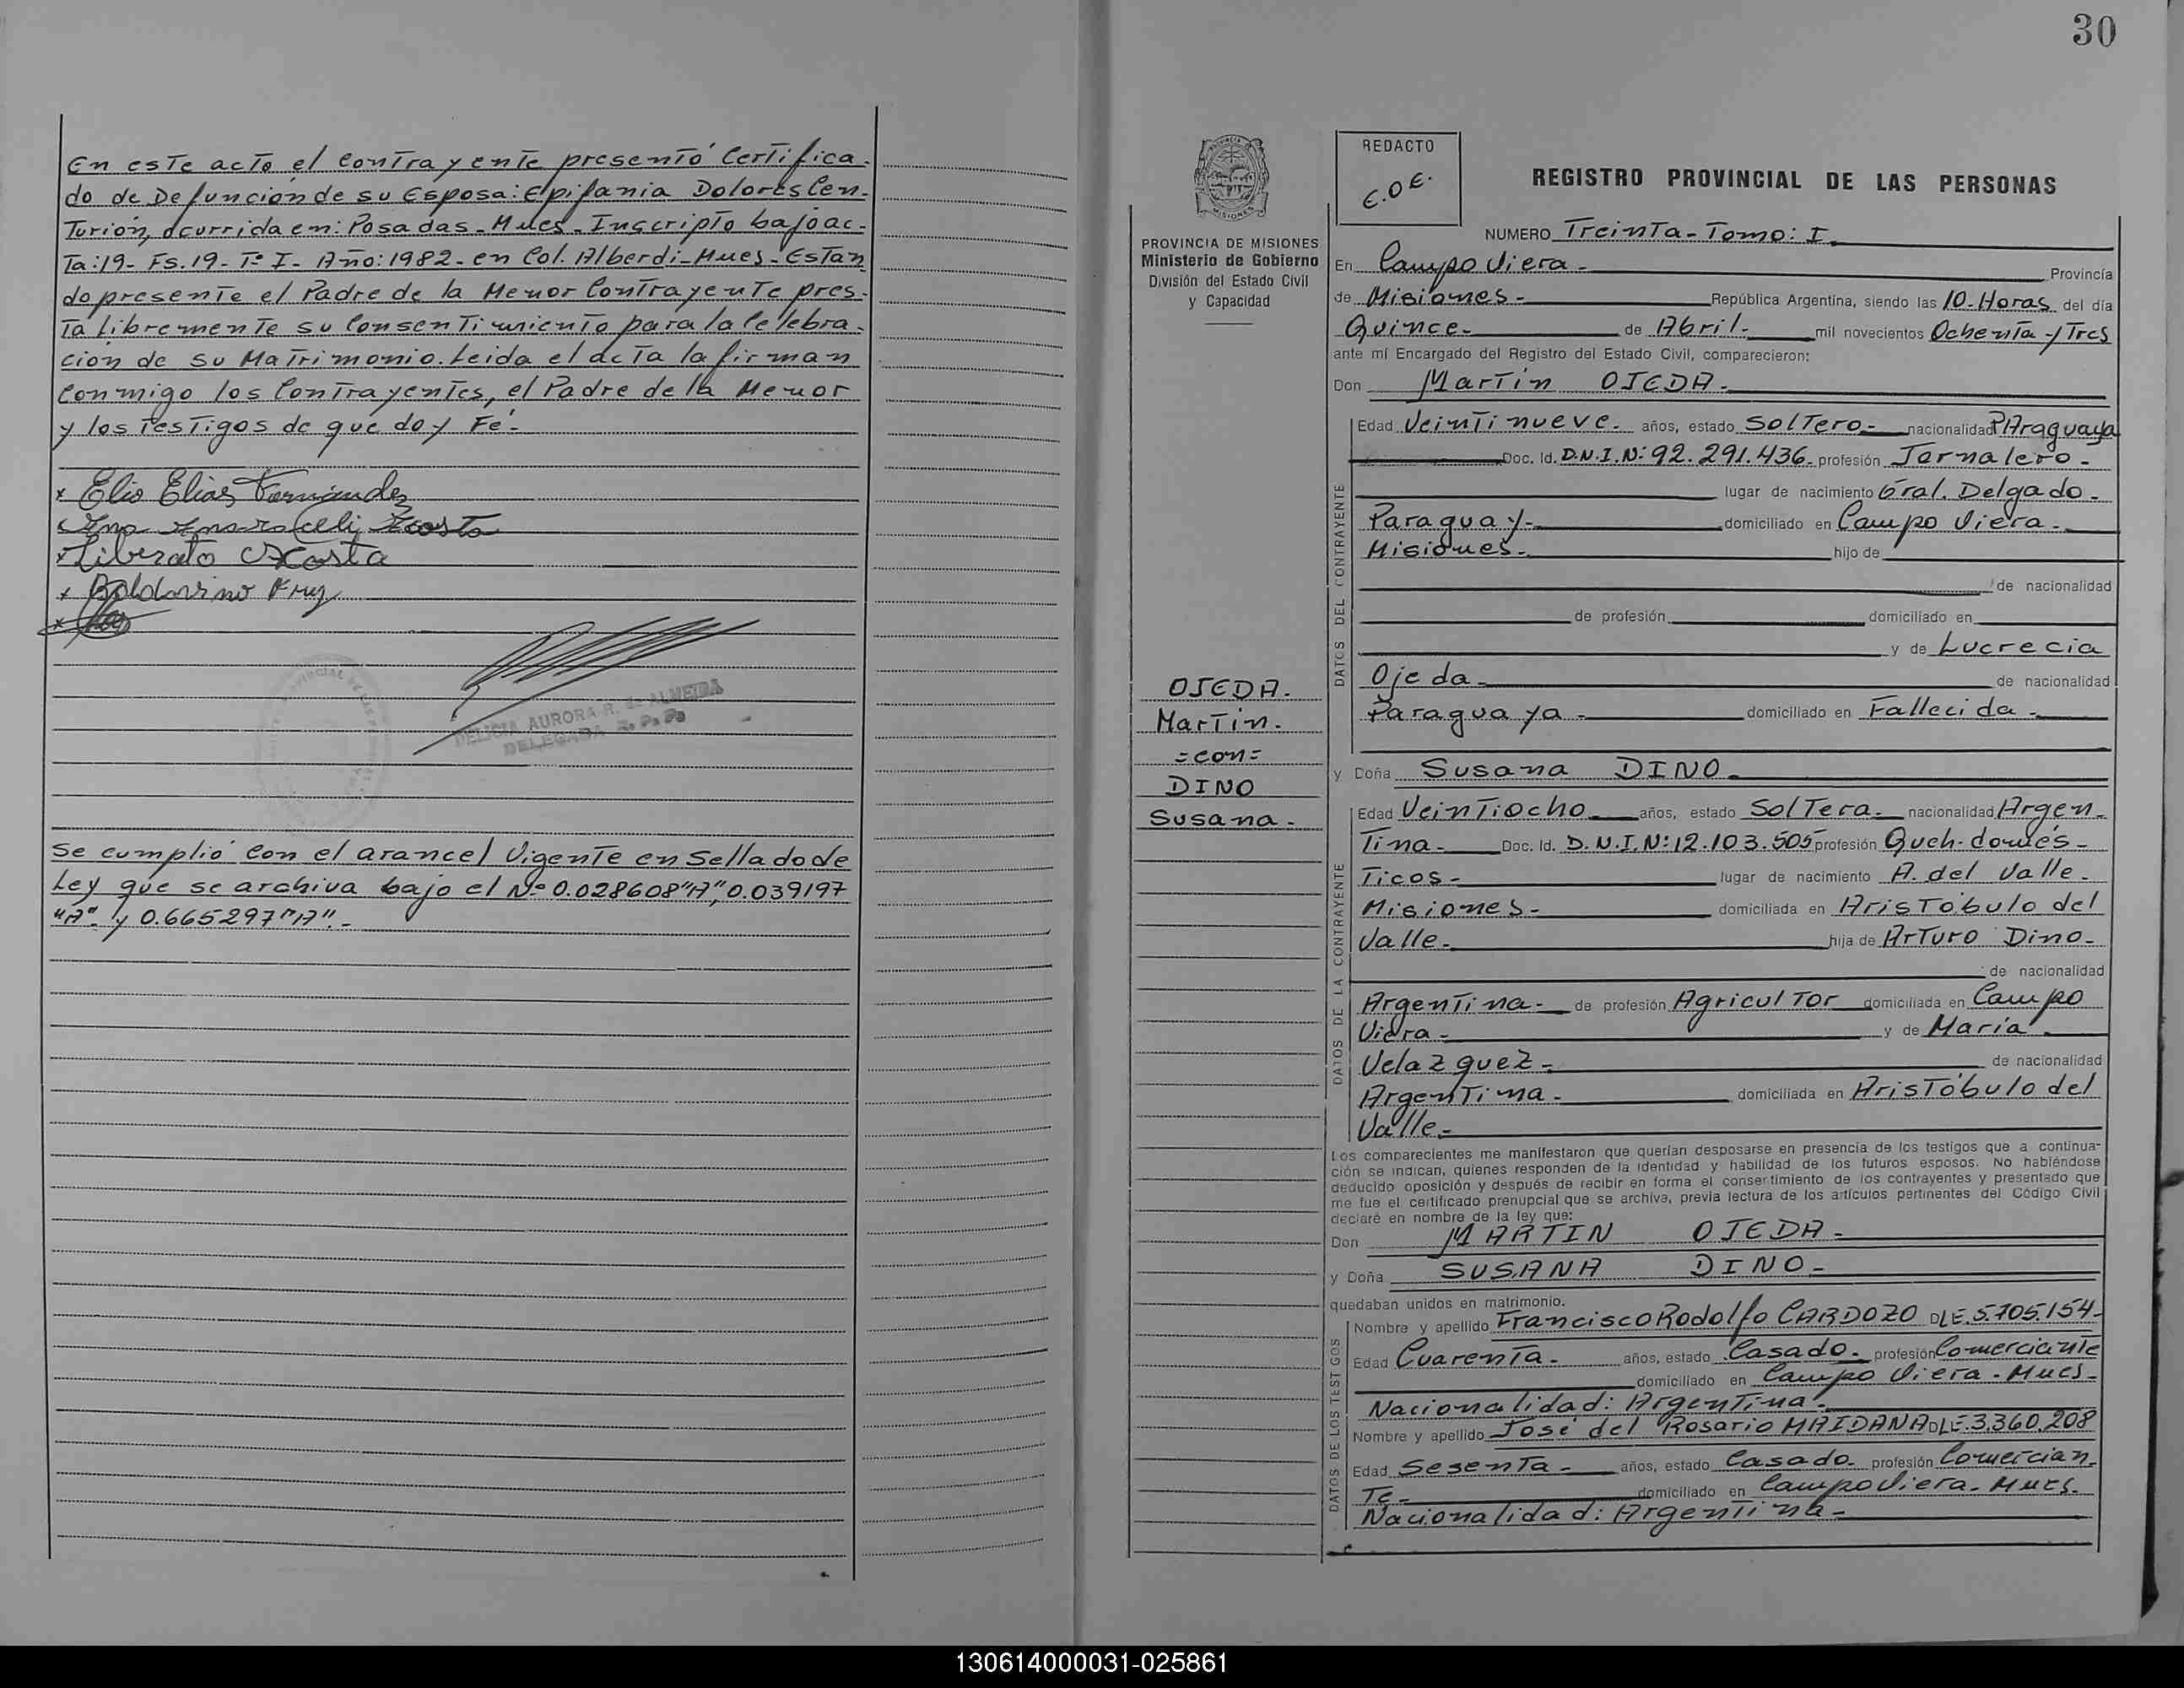 En este acto el Contrayente presentó Certifica-
do de Defunción de su Esposa: Epifania Dolores Cen-
turión, ocurrida en: Posadas-Mnes-Inscripto bajo ac-
ta:19- Fs.19- Tº I- Año:1982- en Col. Alberdi-Mnes- Estan
do presente el Padre de la Menor Contrayente pres-
ta libremente su Consentimiento para la Celebra-
ción de su Matrimonio. Leida el acta la firman
Conmigo los Contrayentes, el Padre de la Menor
y los Testigos de que doy Fé-
x Elio Elias Fernández
Acosta
x Liberato Acosta
x
x
DELICIA AURORA R. de ALMEIDA
DELEGADA R. P. P.
Se cumplió Con el arancel Vigente en Sellado de
Ley que se archiva bajo el Nº 0.028608"A", 0.039197
"A"- y 0.665297"A".-
30
PROVINCIA DE MISIONES
Ministerio de Gobierno
División del Estado Civil
y Capacidad
OJEDA.
Martin.
=con=
DINO
Susana.
REDACTO
E.O.E.
REGISTRO PROVINCIAL DE LAS PERSONAS
NUMERO Treinta-Tomo: I
En Campo Viera- Provincia
de Misiones- República Argentina, siendo las 10-Horas del día
Quince- de Abril- mil novecientos Ochenta y Tres
ante mí Encargado del Registro del Estado Civil, comparecieron:
Don Martin OJEDA-
DATOS DEL CONTRAYENTE
Edad Veintinueve. años, estado Soltero- nacionalidad PAraguaya
Doc. Id. D.N.I.N: 92.291.436- profesión Jornalero-
lugar de nacimiento Gral. Delgado-
Paraguay- domiciliado en Campo Viera-
Misiones- hijo de
de nacionalidad
de profesión domiciliado en
y de Lucrecia
Ojeda- de nacionalidad
Paraguaya- domiciliado en Fallecida-
y Doña Susana DINO-
DATOS DE LA CONTRAYENTE
Edad Veintiocho años, estado Soltera- nacionalidad Argen-
tina- Doc. Id. D.N.I.N:12.103.505 profesión Queh. domés-
ticos- lugar de nacimiento A. del Valle-
Misiones- domiciliada en Aristóbulo del
Valle- hija de Arturo Dino-
de nacionalidad
Argentina- de profesión Agricultor domiciliada en Campo
Viera- y de María-
Velazquez- de nacionalidad
Argentina- domiciliada en Aristóbulo del
Valle-
Los comparecientes me manifestaron que querían desposarse en presencia de los testigos que a continua-
ción se indican, quienes responden de la identidad y habilidad de los futuros esposos. No habiéndose
deducido oposición y después de recibir en forma el consentimiento de los contrayentes y presentado que
me fue el certificado prenupcial que se archiva, previa lectura de los artículos pertinentes del Código Civil
declaré en nombre de la ley que:
Don MARTIN OJEDA-
y Doña SUSANA DINO-
quedaban unidos en matrimonio.
DATOS DE LOS TESTIGOS
Nombre y apellido Francisco Rodolfo CARDOZO DLE.5.705.154-
Edad Cuarenta- años, estado Casado- profesión Comerciante
domiciliado en Campo Viera- Mnes-
Nacionalidad: Argentina-
Nombre y apellido José del Rosario MAIDANA DLE.3.360.208
Edad Sesenta- años, estado Casado- profesión Comercian-
te- domiciliado en Campo Viera- Mnes-
Nacionalidad: Argentina-
130614000031-025861